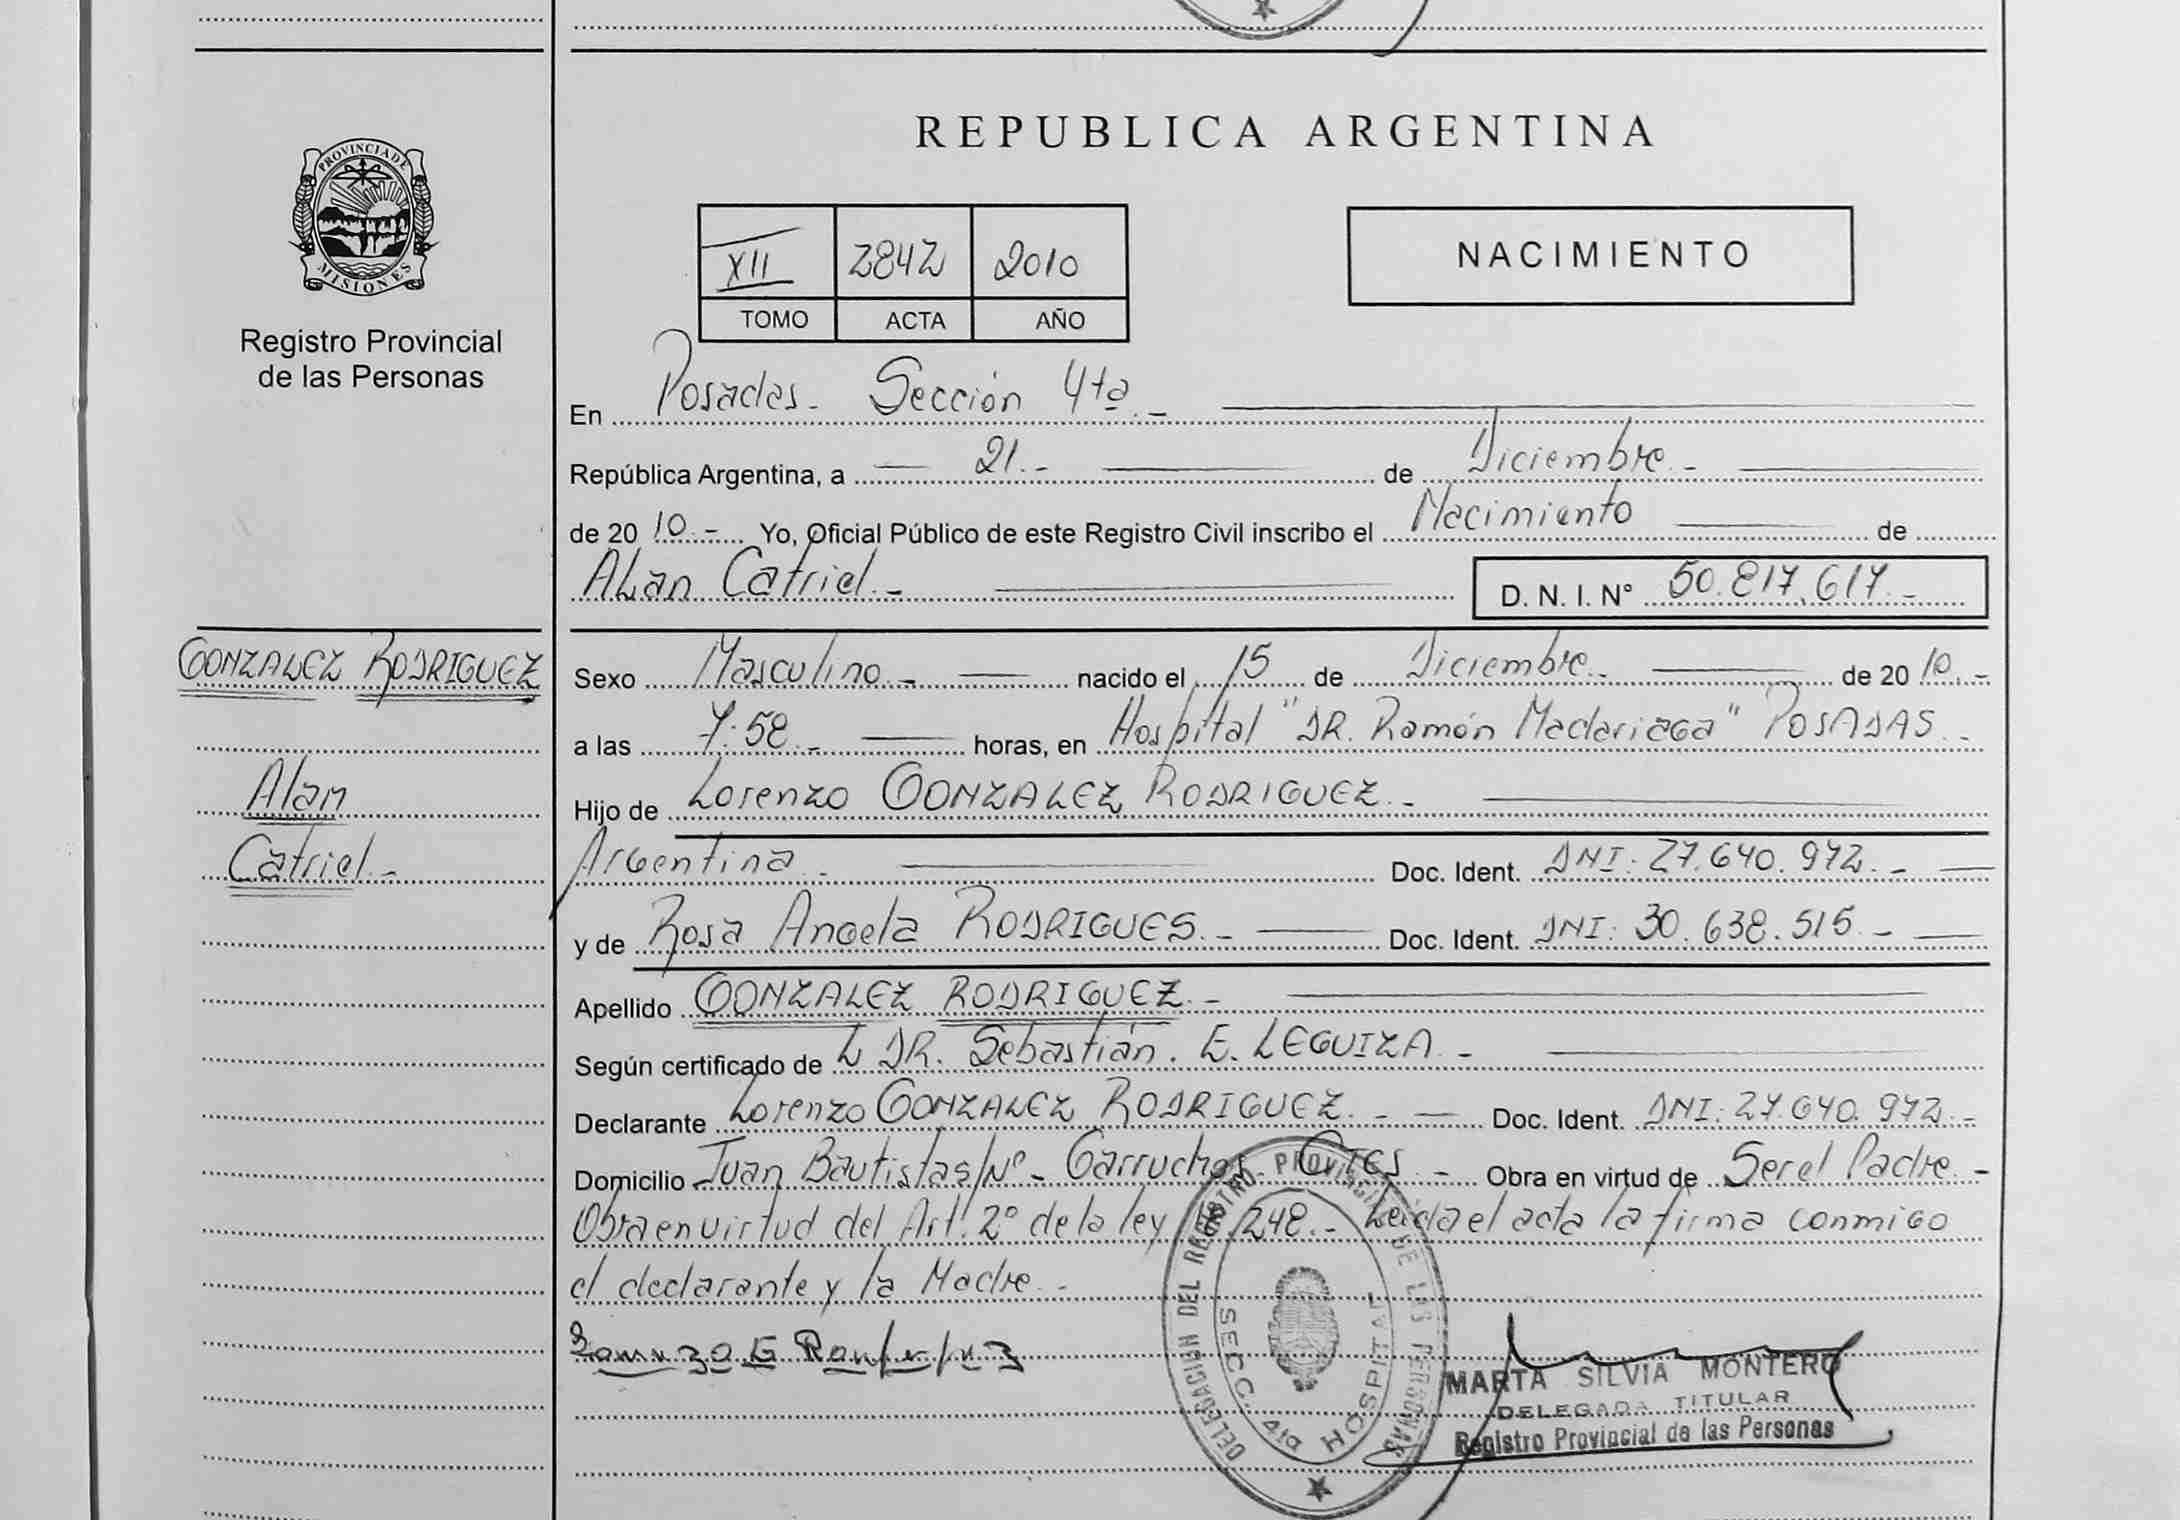 REPUBLICA ARGENTINA
PROVINCIA DE MISIONES
Registro Provincial
de las Personas
XII 2842 2010
TOMO ACTA AÑO
NACIMIENTO
En Posadas - Sección 4ta. -
República Argentina, a 21. - de Diciembre. -
de 20 10. - Yo, Oficial Público de este Registro Civil inscribo el Nacimiento de
Alan Catriel. - D. N. I. N° 50.817.617. -
GONZALEZ RODRIGUEZ
Alan
Catriel. -
Sexo Masculino. - nacido el 15 de Diciembre. - de 20 10. -
a las 7:58. - horas, en Hospital "DR. Ramón Madariaga" POSADAS. -
Hijo de Lorenzo GONZALEZ RODRIGUEZ. -
Argentina. - Doc. Ident. DNI: 27.640.972. -
y de Rosa Angela RODRIGUES. - Doc. Ident. DNI: 30.638.515. -
Apellido GONZALEZ RODRIGUEZ. -
Según certificado de L DR. Sebastián. E. LEGUIZA. -
Declarante Lorenzo GONZALEZ RODRIGUEZ. - Doc. Ident. DNI: 27.640.972. -
Domicilio Juan Bautista s/Nº - Garruchos - Ctes. - Obra en virtud de Ser el Padre. -
Obra en virtud del Art. 2° de la ley 18.248. - Leida el acta la firma conmigo
el declarante y la Madre. -
DELEGACION DEL REGISTRO PROVINCIAL DE LAS PERSONAS
SECC. 4ta HOSPITAL
MARTA SILVIA MONTERO
DELEGADA TITULAR
Registro Provincial de las Personas